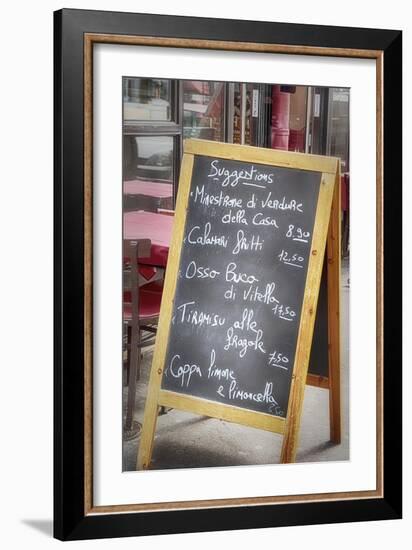 Suggestions
Minestrone di verdure
della Casa
8,90
Calamari fritti
12,50
Osso Buco
di Vitella
17,50
Tiramisu alle
fragole
7,50
Coppa limone
e limoncella